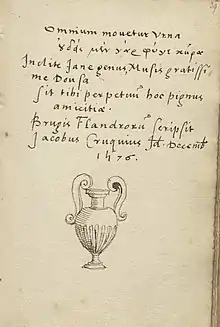 Omnium movetur Urna
Inclite Jane genus, Musis gratissi
me Dousa
sit tibi perpetuū hoc pignus
amicitiæ.
Brugis Flandrorū scripsit
Jacobus Cruquius Id. Decemb
1476.